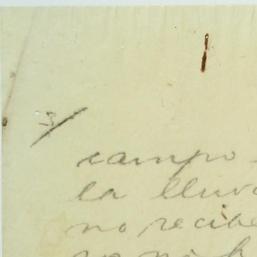 3/
campo
la lluv
no recibe